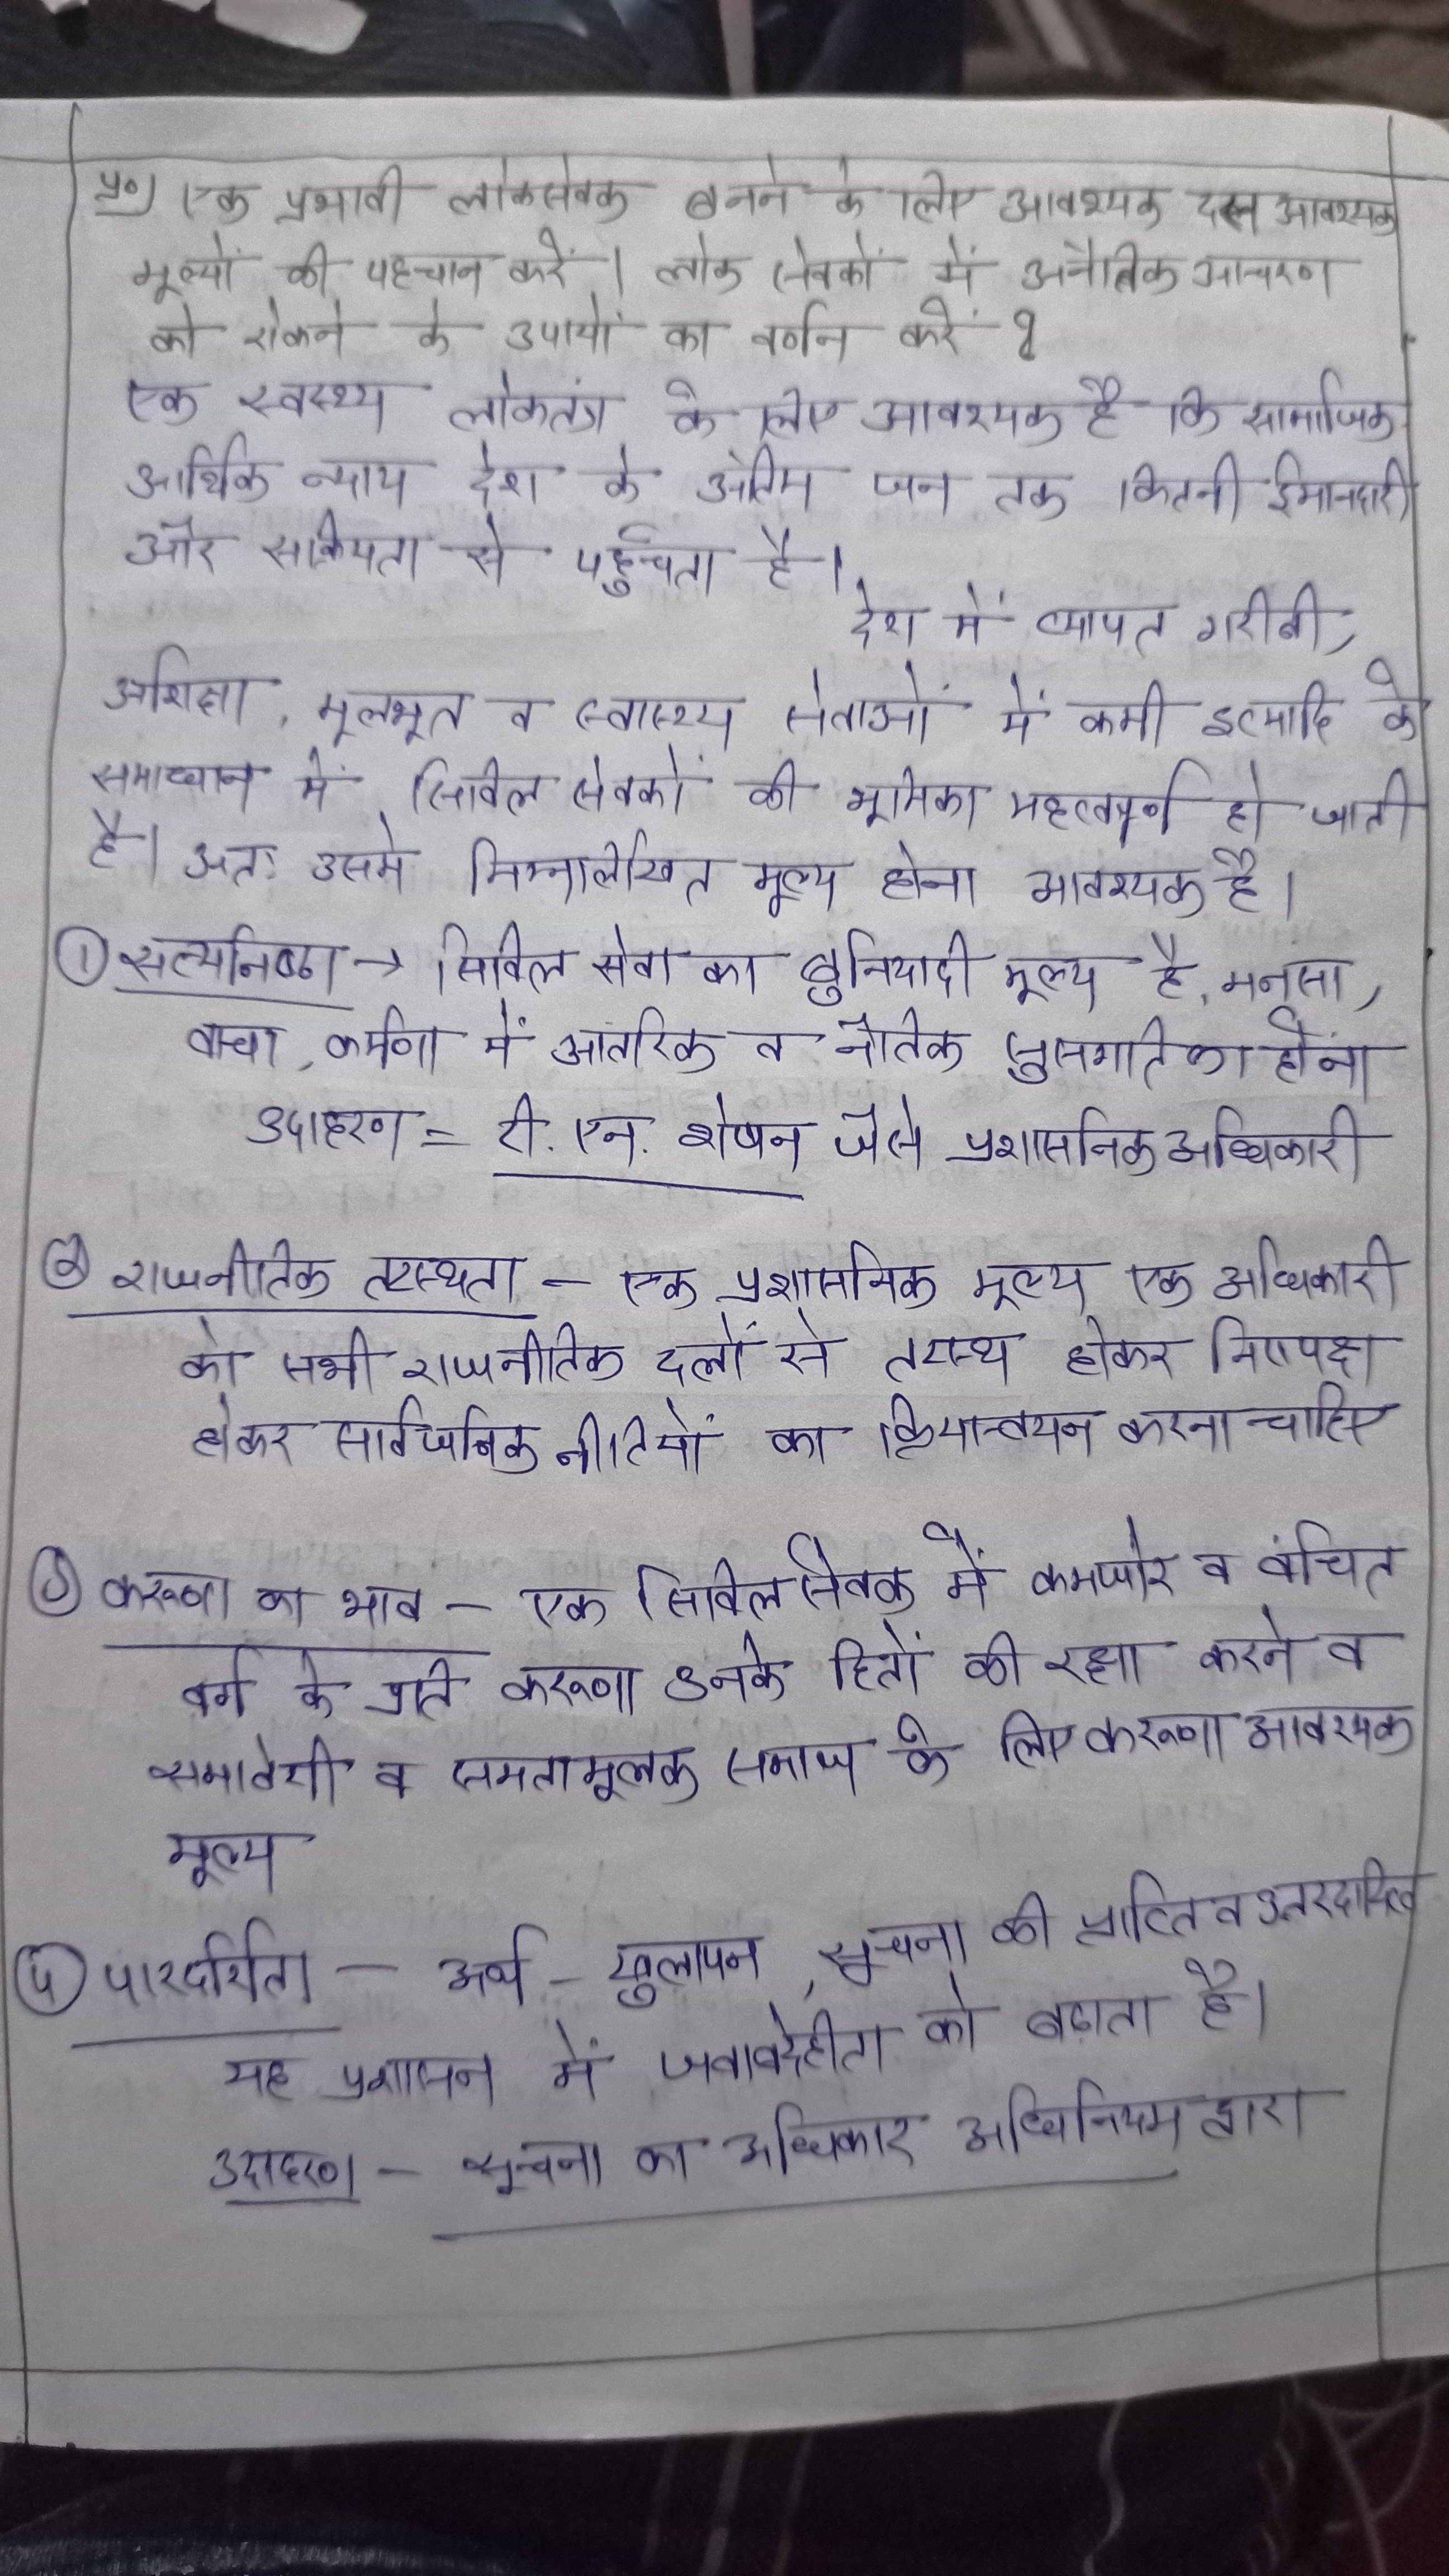 प्र०) एक प्रभावी लोकसेवक बनने के लिए आवश्यक दस आवश्यक
मूल्यों की पहचान करें। लोक सेवकों में अनैतिक आचरण
को रोकने के उपायों का वर्णन करें ?
एक स्वस्थ्य लोकतंत्र के लिए आवश्यक है कि सामाजिक
आर्थिक न्याय देश के अंतिम जन तक कितनी ईमानदारी
और सक्रियता से पहुँचता है।
देश में व्यापत गरीबी,
अशिक्षा, मूलभूत व स्वास्थ्य सेवाओं में कमी इत्यादि के
समाधान में सिविल सेवकों की भूमिका महत्वपूर्ण हो जाती
है। अतः उसमे निम्नलिखित मूल्य होना आवश्यक है।
① सत्यनिष्ठा → सिविल सेवा का बुनियादी मूल्य है, मनसा,
वाचा, कर्मणा में आंतरिक व नैतिक सुसंगति का होना
उदाहरण = टी. एन. शेषन जैसे प्रशासनिक अधिकारी
② राजनीतिक तटस्थता - एक प्रशासनिक मूल्य एक अधिकारी
को सभी राजनीतिक दलों से तटस्थ होकर निष्पक्ष
होकर सार्वजनिक नीतियों का क्रियान्वयन करना चाहिए
③ करूणा का भाव - एक सिविल सेवक में कमजोर व वंचित
वर्ग के प्रति करूणा उनके हितों की रक्षा करने व
समावेशी व समतामूलक समाज के लिए करूणा आवश्यक
मूल्य
④ पारदर्शिता - अर्थ - खुलापन, सूचना की प्राप्ति व उत्तरदायित्व
यह प्रशासन में जवाबदेहीता को बढ़ाता है।
उदाहरण - सूचना का अधिकार अधिनियम द्वारा